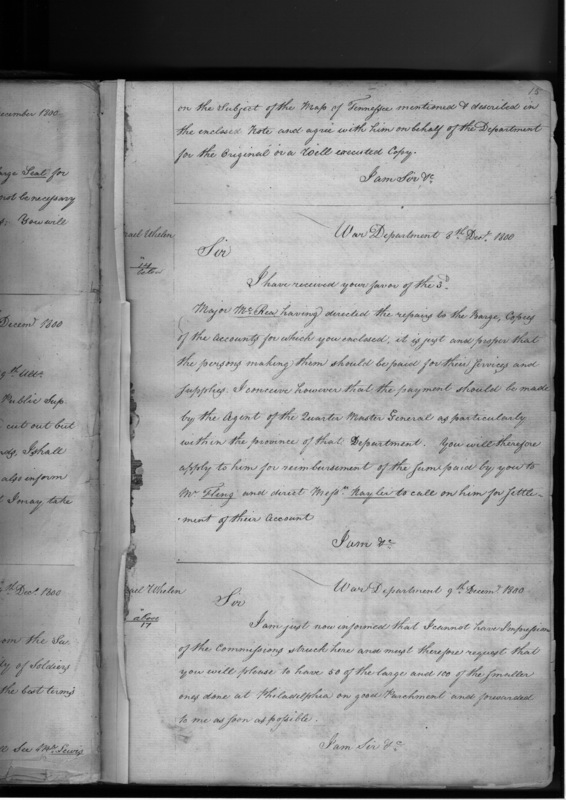 ecember 1800
Seat for
not be necessary
You will
Decem^r 1800
Public Sup
cut out but
I shall
also inform
I may take
Dec^r. 1800
om the Su
ty of Soldiers
the best terms
See M^r. Lewis
15
on the Subject of the Map of Tennessee mentioned & described in
the enclosed Note and agree with him on behalf of the Department
for the Original or a Well executed Copy.
I am Sir &c
rael Whelen
War Department 9th Decr. 1800
Sir
I have received your favor of the 3d
Major McRea having directed the repairs to the Barge, Copies
of the Accounts for which you enclosed, it is just and proper that
the persons making them should be paid for their Services and
Supplies. I conceive however that the payment should be made
by the Agent of the Quarter Master General as particularly
within the province of that Department. You will therefore
apply to him for reimbursement of the sum paid by you to
Mr Fling and direct Messrs Kayler to call on him for settle-
-ment of their Account
I am &c
ael Whelen
War Department 9th Decemr 1800
above
17
Sir
I am just now informed that I cannot have Impressions
of the Commissions struck here and must therefore request that
you will please to have 50 of the large and 100 of the smaller
ones done at Philadelphia on good Parchment and forwarded
to me as soon as possible.
I am Sir &c